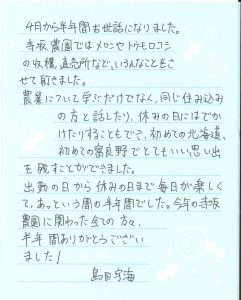 4月から半年間お世話になりました。
寺坂農園ではメロンやトウモロコシ
の収穫、直売所など、いろんなことをさ
せて頂きました。
農業について学ぶだけでなく、同じ住み込み
の方と話したり、休みの日にはでか
けたりすることもでき、初めての北海道、
初めての富良野でとてもいい思い出
を残すことができました。
出勤の日から休みの日まで毎日が楽しく
て、あっという間の半年間でした。今年の寺坂
農園に関わった全ての方々、
半年間ありがとうござい
ました!
島田 海